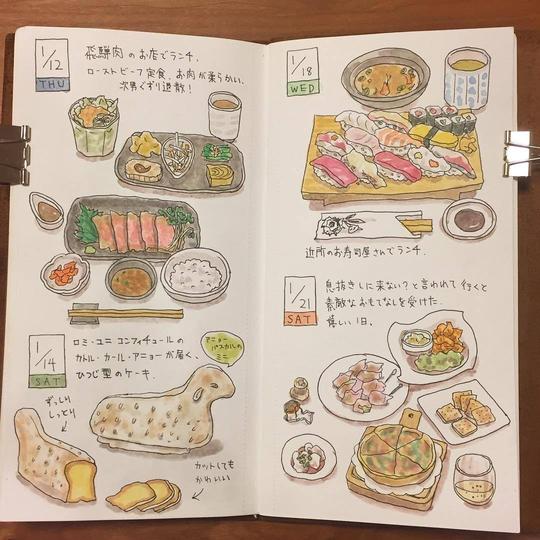 1/12
THU
飛騨肉のお店でランチ。
ローストビーフ定食。お肉が柔らかい。
次男ぐずり退散!
1/14
SAT
ロミ・ユニ コンフィチュールの
カトル・カール・アニョーが届く。
ひつじ型のケーキ。
アニョー
パスカルの
ミニ
ずっしり
しっとり
カットしても
かわいい
1/18
WED
近所のお寿司屋さんでランチ。
1/21
SAT
息抜きしに来ない?と言われて行くと
素敵なおもてなしを受けた。
嬉しい1日。